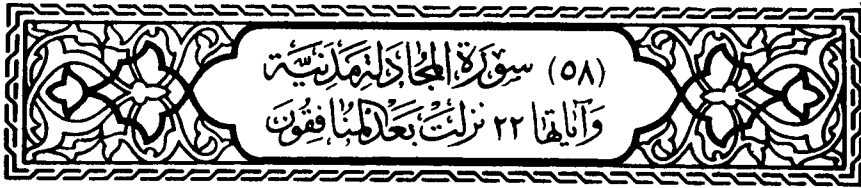 (٥٨) سُورَةُ المجَادَلَةِ مَدَنِيَّة
وَآيَاتُهَا ٢٢ نَزَلَتْ بَعْدَ المنَافِقُونَ